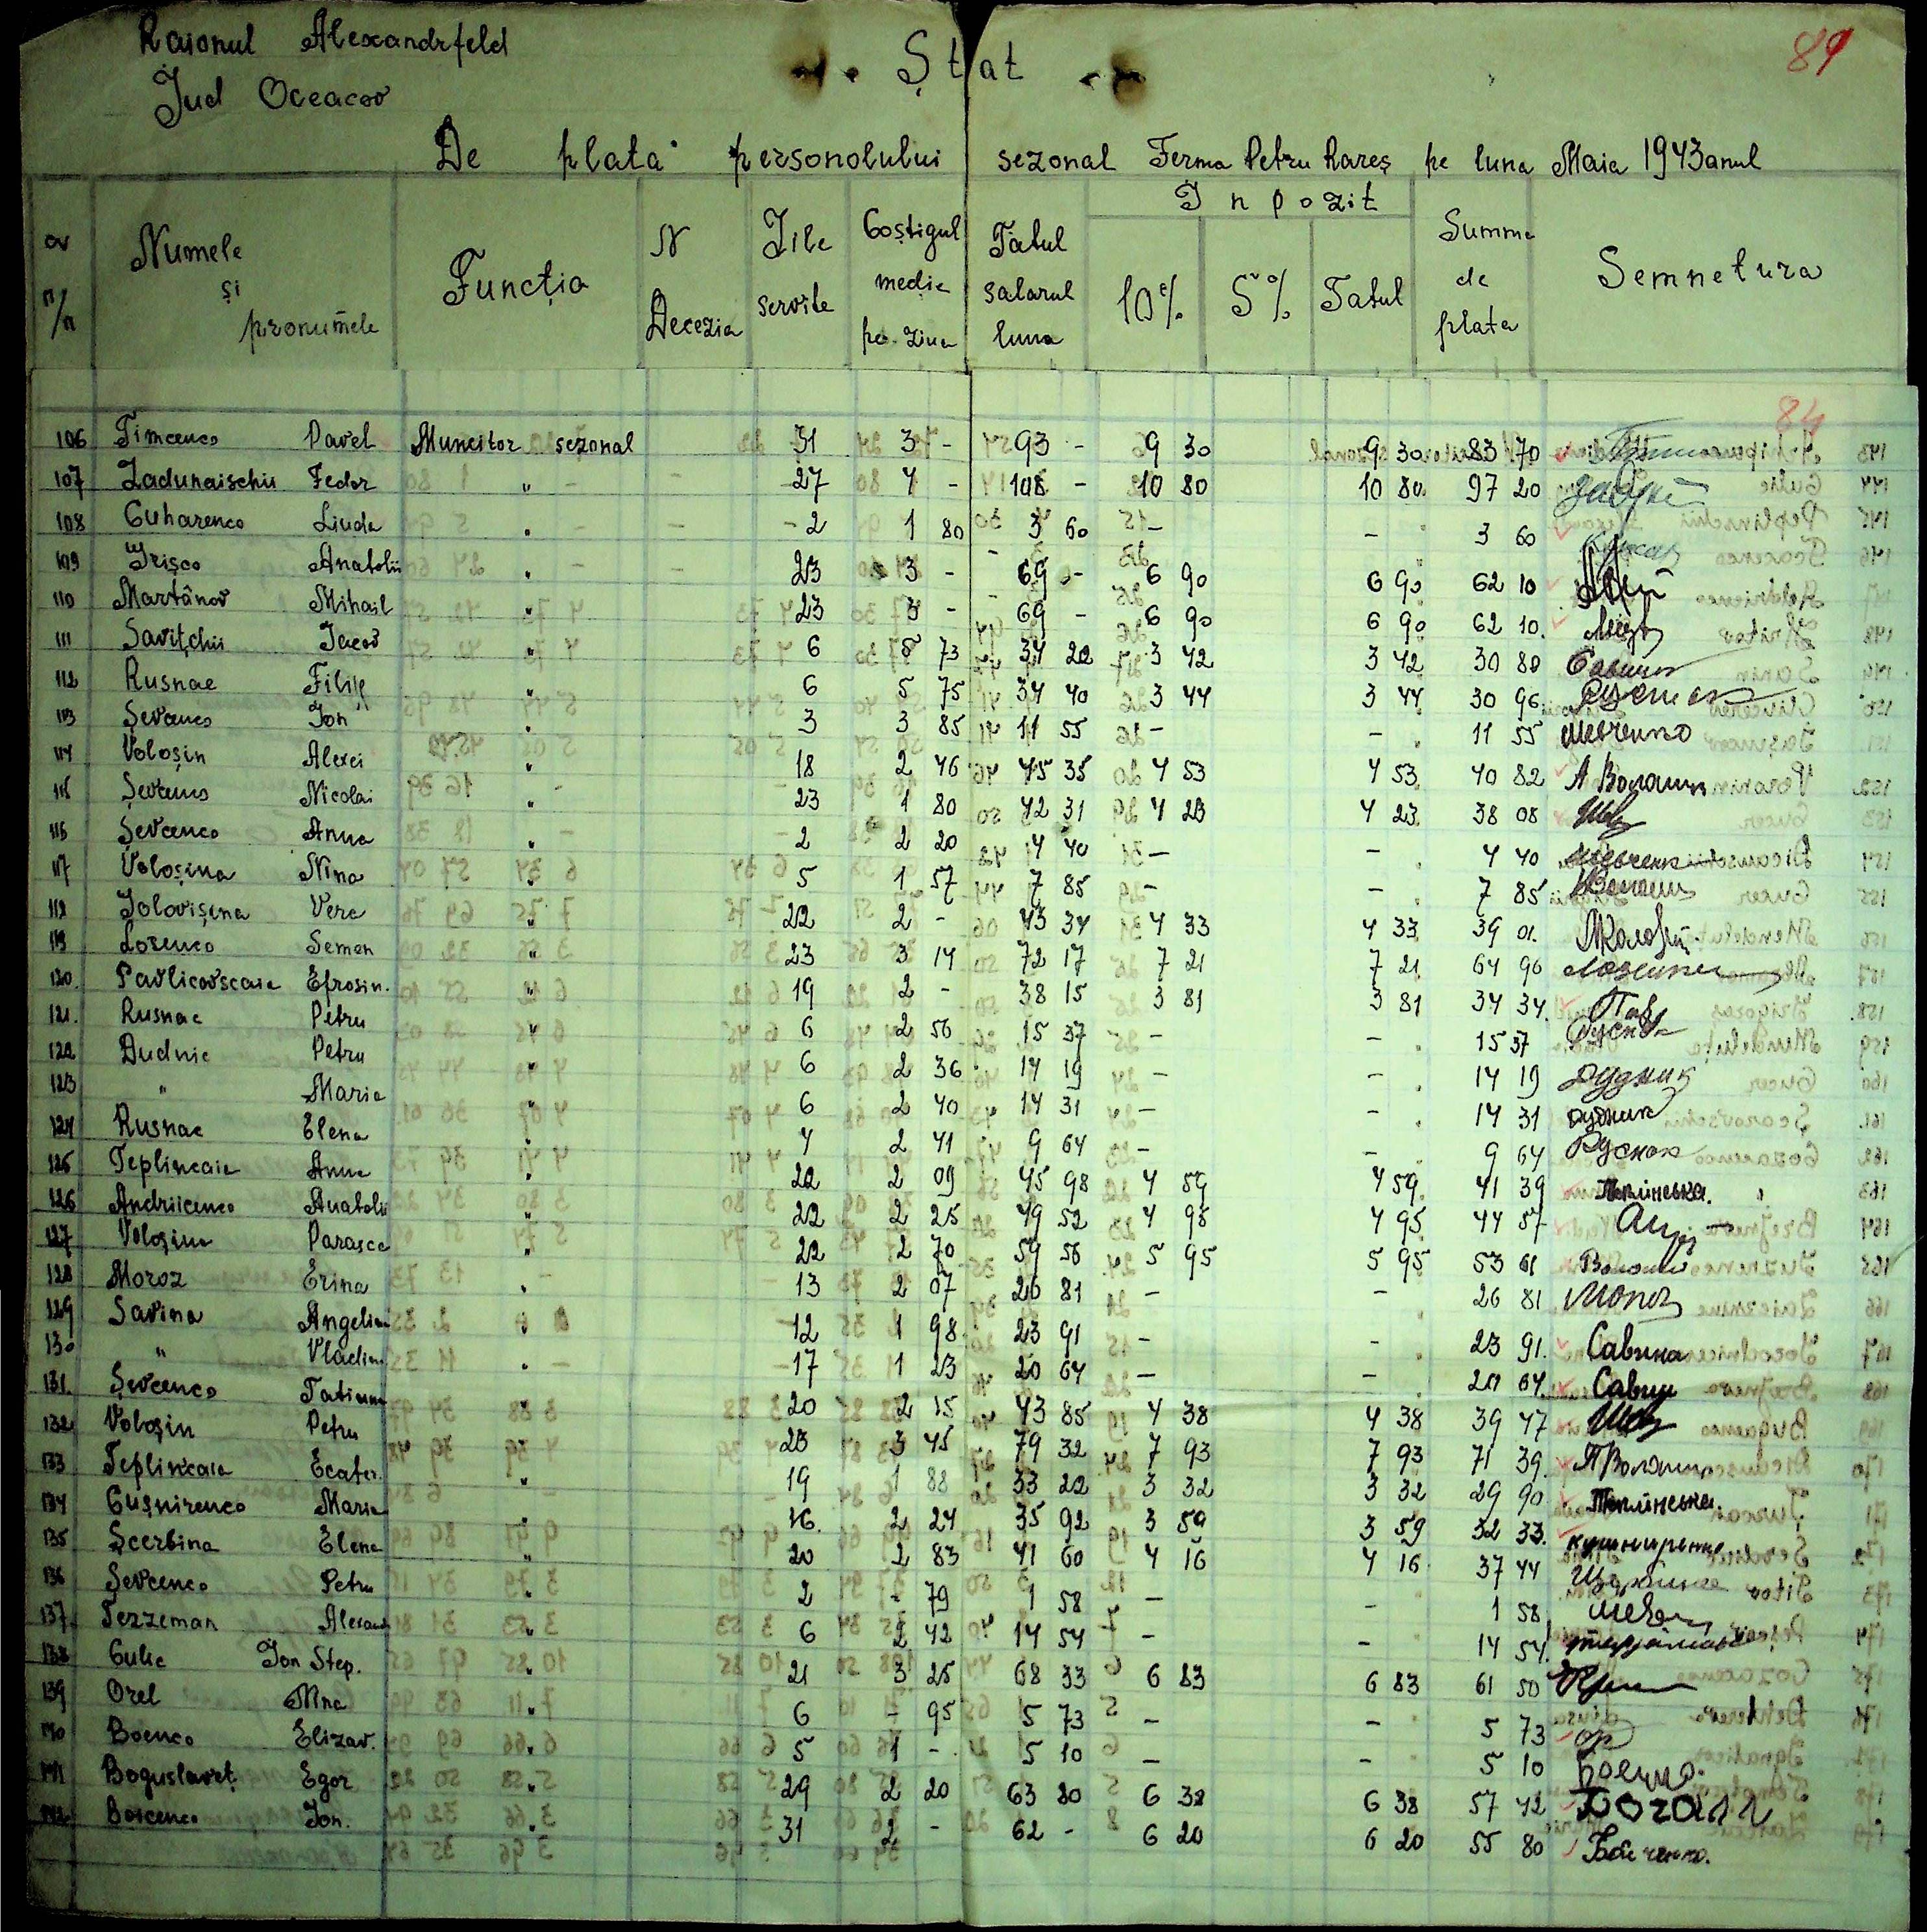 Raionul Alexandrfeld
89
Ștat
Jud Oceacov
De plata personolului sezonal Ferma Petru Rareș pe luna Maia 1943 anul
n/n
Numele și pronumele
Funcția
N Decezia
Zile servite
Coștigul medie pe ziua
Tatul salarul luna
Inpozit
10%
5%
Tatul
Summa de plata
Semnetura
84
106 Timcenco Pavel Muncitor sezonal 31 3 - 93 - 9 30 9 30 83 70
107 Zadunaischii Fedor " 27 4 - 108 - 10 80 10 80 97 20
108 Cuharenco Liuda " 2 1 80 3 60 - - 3 60
109 Grișco Anatolii " 23 3 - 69 - 6 90 6 90 62 10
110 Martânov Mihail " 23 3 - 69 - 6 90 6 90 62 10
111 Savițchii Jacov " 6 5 73 34 22 3 42 3 42 30 80 Савиц
112 Rusnac Filip " 6 5 75 34 40 3 44 3 44 30 96 Руснак
113 Șevcenco Jon " 3 3 85 11 55 - - 11 55 Шевченко
114 Voloșin Alexei " 18 2 46 45 35 4 53 4 53 40 82 А Волошин
115 Șevcenco Nicolai " 23 1 80 42 31 4 23 4 23 38 08 Шев
116 Șevcenco Anna " 2 2 20 4 40 - - 4 40 Шевченко
117 Voloșina Nina " 5 1 57 7 85 - - 7 85
118 Jolovișina Vera " 22 2 - 43 34 4 33 4 33 39 01
119 Losenco Semen " 23 3 14 72 17 7 21 7 21 64 96
120 Pavlicovscaia Efrosin. " 19 2 - 38 15 3 81 3 81 34 34 Пав
121 Rusnac Petru " 6 2 56 15 37 - - 15 37 Руснак
122 Dudnic Petru " 6 2 36 14 19 - - 14 19 Дудник
123 " Maria " 6 2 40 14 31 - - 14 31 Дудник
124 Rusnac Elena " 4 2 41 9 64 - - 9 64 Руснак
125 Teplincaia Anna " 22 2 09 45 98 4 59 4 59 41 39 Теплінська.
126 Andriicenco Anatolii " 22 2 25 49 52 4 95 4 95 44 57
127 Voloșina Parasca " 22 2 70 59 56 5 95 5 95 53 61 Волоши
128 Moroz Erina " 13 2 07 26 81 - - 26 81 Мороз
129 Savina Angelina " 12 1 98 23 91 - - 23 91 Савина
130 " Vladim " 17 1 23 20 64 - - 20 64 Савин
131 Șevcenco Tatiana " 20 2 15 43 85 4 38 4 38 39 47 Шев
132 Voloșin Petru " 23 3 45 79 32 7 93 7 93 71 39 П Волошин
133 Teplincaia Ecater. " 19 1 88 33 22 3 32 3 32 29 90 Теплінська.
134 Cușnirenco Maria " 16 2 24 35 92 3 59 3 59 32 33 Кушниренко
135 Șcerbina Elena " 20 2 83 41 60 4 16 4 16 37 44 Щербина
136 Șevcenco Petru " 2 - 79 1 58 - - 1 58 Шевч
137 Terzeman Alexand " 6 2 42 14 54 - - 14 54
138 Culic Jon Step. " 21 3 25 68 33 6 83 6 83 61 50
139 Orel Nina " 6 - 95 5 73 - - 5 73 Ор
140 Boenco Elizav. " 5 1 - 5 10 - - 5 10 Боенко.
141 Boguslaveț Egor " 29 2 20 63 80 6 38 6 38 57 42 Богалл
142 Boicenco Jon. " 31 2 - 62 - 6 20 6 20 55 80 Бойченко.